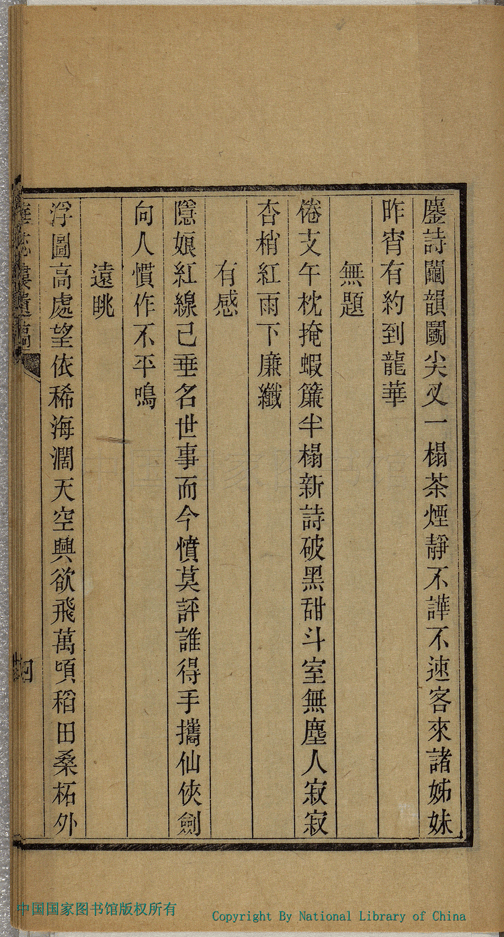 鏖詩鬭韻鬭尖叉一榻茶煙靜不譁不速客來諸姊妹
昨宵有約到龍華
無題
倦支午枕掩蝦簾半榻新詩破黑甜斗室無塵人寂寂
杏梢紅雨下廉纖
有感
隱娘紅線已垂名世事而今憤莫評誰得手攜仙俠劍
向人慣作不平鳴
遠眺
浮圖高處望依稀海濶天空興欲飛萬頃稻田桑柘外
中国国家图书馆版权所有
Copyright By National Library of China